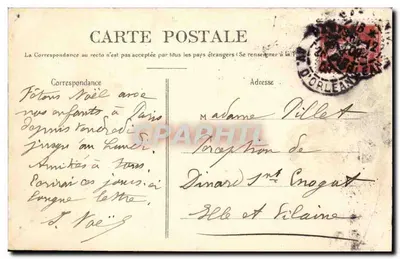 CARTE POSTALE
La Correspondance au recto n'est pas acceptée par tous les pays étrangers (Se renseigner à la
Correspondance
Adresse
D'ORLEANS
Fêtons Noël avec
nos enfants à Paris
depuis vendredi
jusqu'au Lundi.
Amitiés à tous.
Ecrirai ces jours-ci
longue lettre.
Madame Villet
Perception de
Dinard St Enogat
Ille et Vilaine